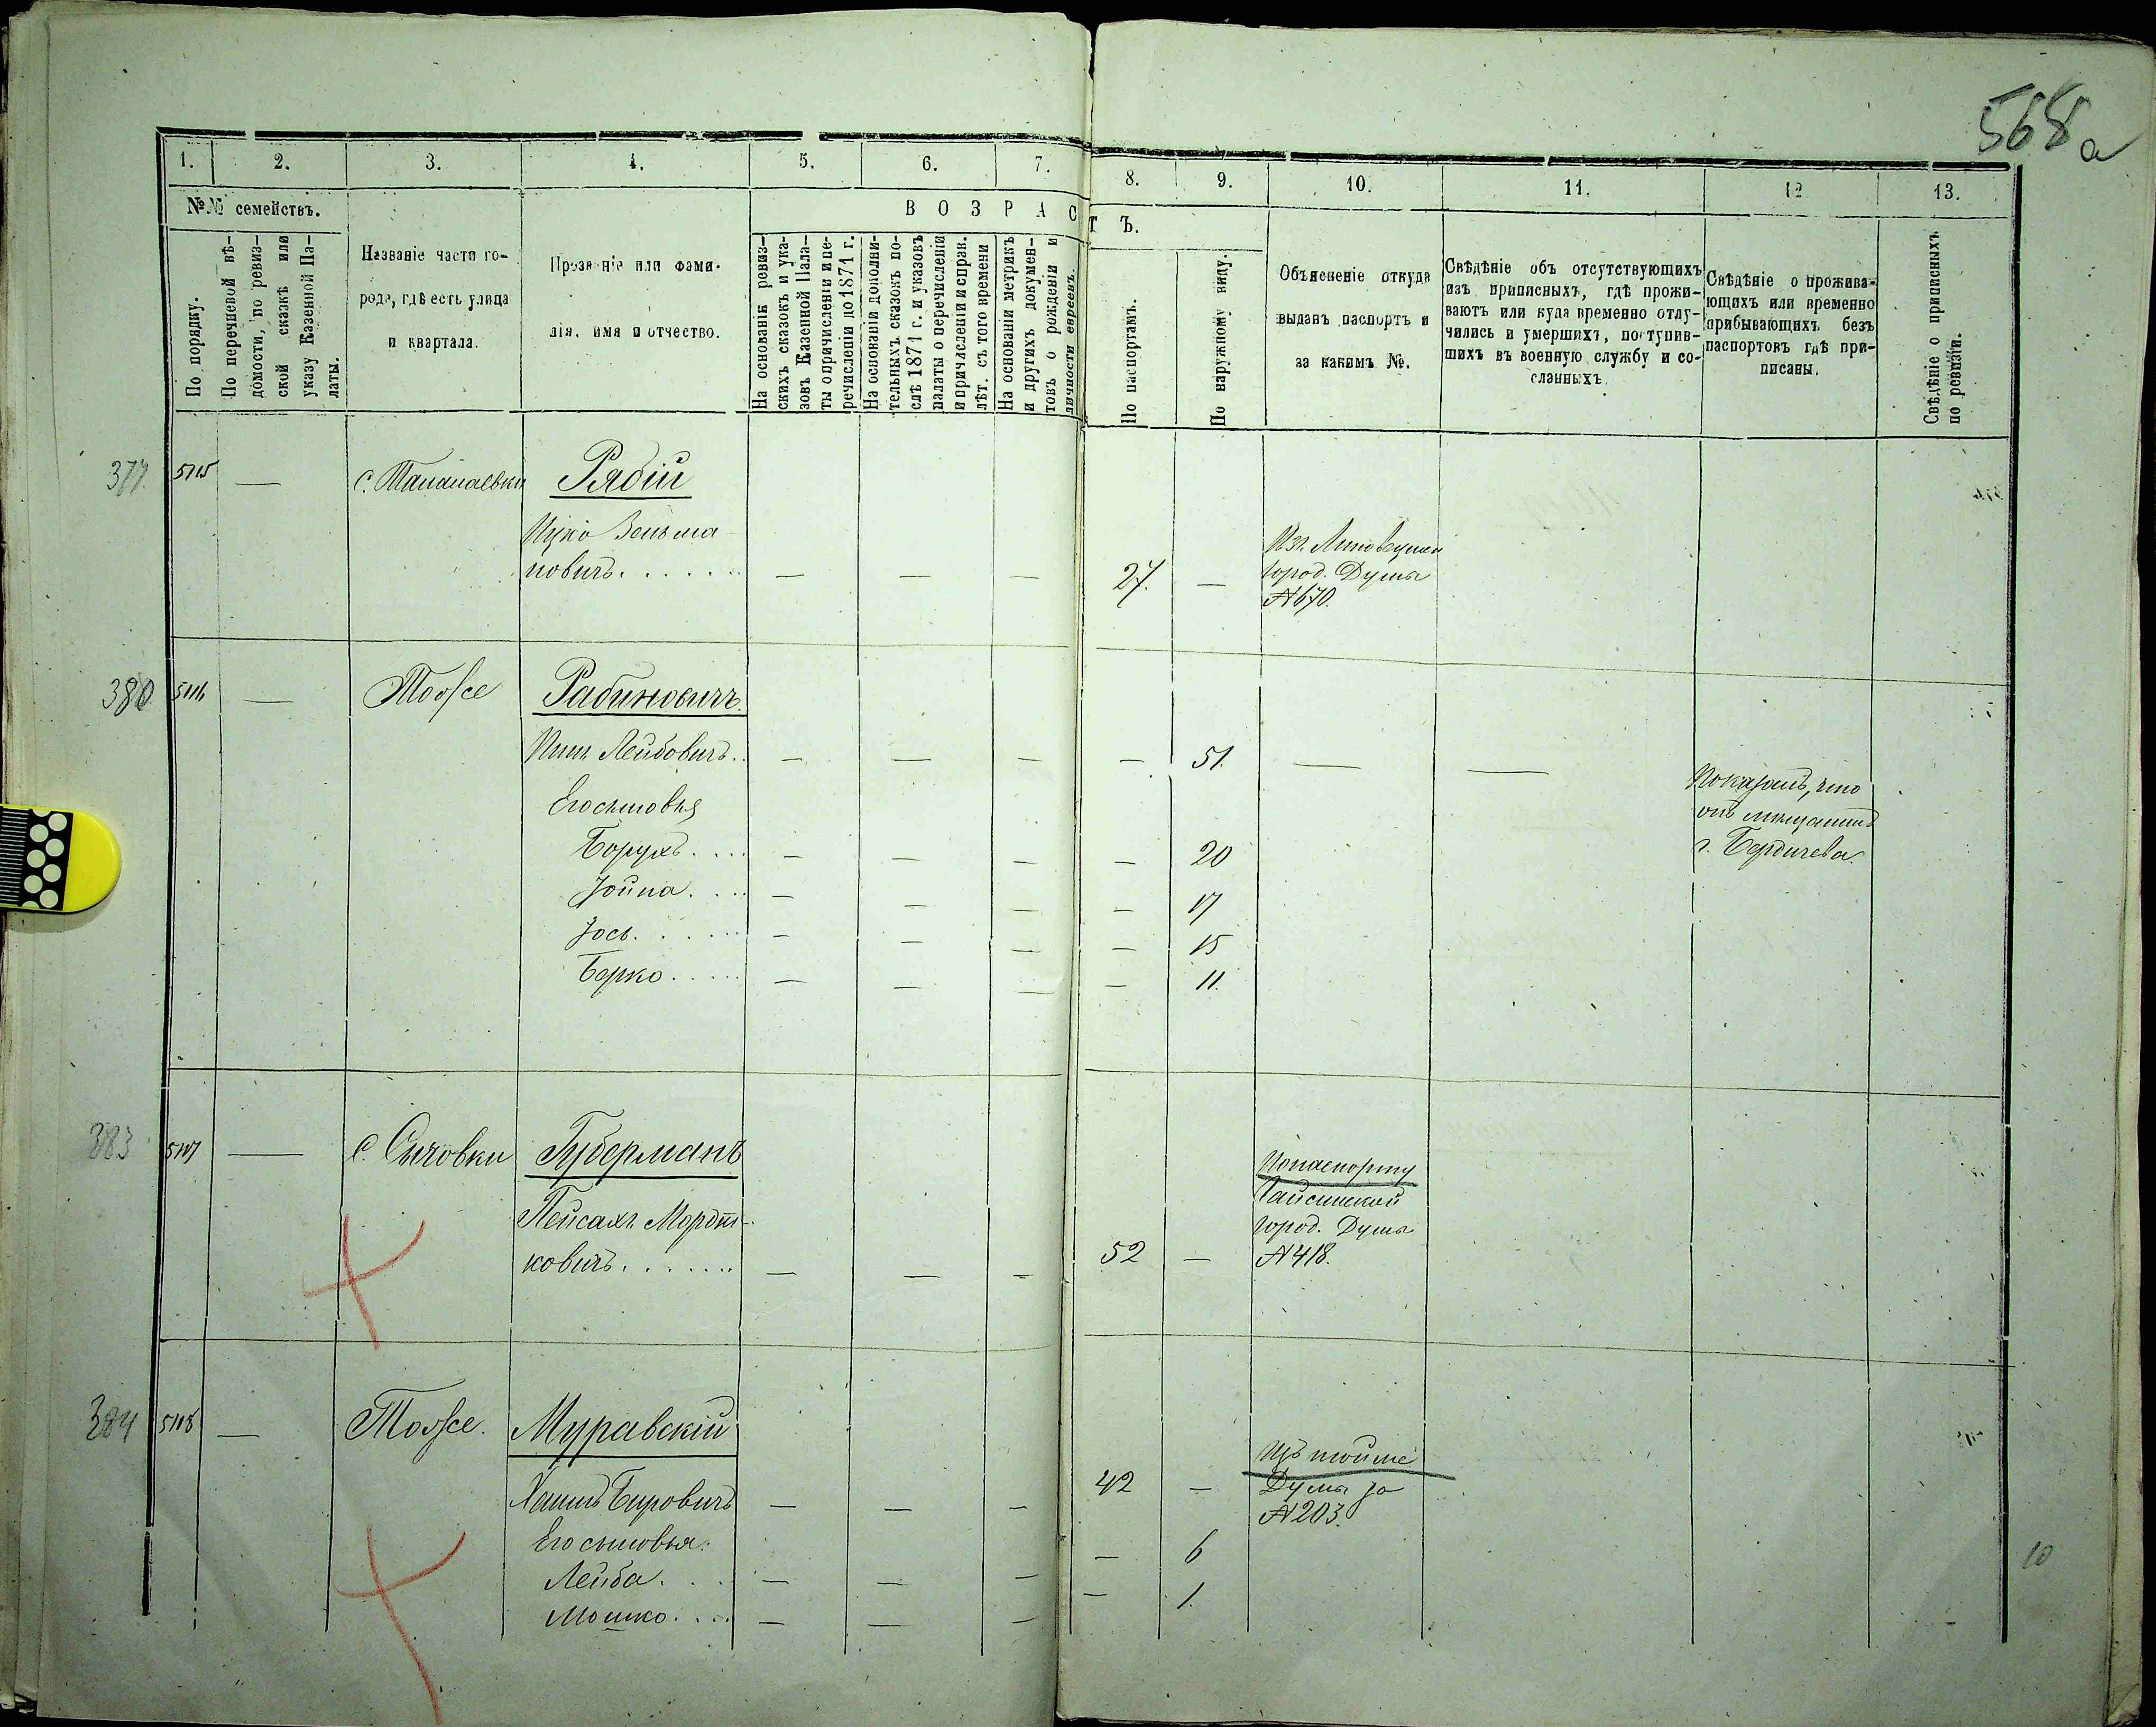 568 а
1. 2. 3. 4. 5. 6. 7. 8. 9. 10. 11. 12 13.
№№ семействъ.
В О З Р А С Т Ъ.
По порядку.
По перечневой вѣ-
домости, по ревиз-
ской сказкѣ или
указу Казенной Па-
латы.
Названіе части го-
рода, гдѣ есть улица
и квартала.
Прозваніе или фами-
лія, имя и отчество.
На основаніи ревиз-
скихъ сказокъ и ука-
зовъ Казенной Пала-
ты о причисленіи и пе-
речисленіи до 1871 г.
На основаніи дополни-
тельныхъ сказокъ по-
слѣ 1871 г. и указовъ
палаты о перечисленіи
и причисленіи и справ.
лѣт. съ того времени
На основаніи метрикъ
и другихъ докумен-
товъ о рожденіи и
личности евреевъ.
По паспортамъ.
По наружному виду.
Объясненіе откуда
выданъ паспортъ и
за какимъ №.
Свѣдѣніе объ отсутствующихъ
изъ приписныхъ, гдѣ прожи-
ваютъ или куда временно отлу-
чились и умершихъ, поступив-
шихъ въ военную службу и со-
сланныхъ.
Свѣдѣніе о прожива-
ющихъ или временно
прибывающихъ безъ
паспортовъ гдѣ при-
писаны.
Свѣдѣніе о приписныхъ
по ревизіи.
5115 — с. Рябій
Ицко Зельма-
новичъ. . . . . . — — — 27. —
Изъ Липовецкой
Город. Думы
№ 670.
380 5116 — Тоже Рабиновичъ.
Лейбовичъ. . — — — — 51. — —
Показалъ, что
онъ мѣщанинъ
г. Бердичева.
Его сыновья
Борухъ. . . . — — — — 20
Іойна. . . . — — — — 17
Іось. . . . . — — — — 15
Берко. . . . . — — — — 11.
383 5117 — с. Сычовки Губерманъ
Пейсахъ Мордъ-
ковичъ. . . . . . . — — — 52 —
По паспорту
Гайсинской
Город. Думы
№ 418.
384 5118 — Тоже. Муравскій
Хаимъ Беровичъ — — — 42 —
Изъ той же
Думы за
№ 203.
Его сыновья:
Лейба. . . . — — — — 6
Мошко. . . . — — — — 1.
10